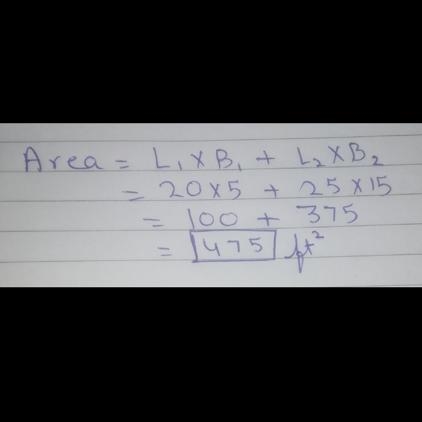 Area = L₁ × B₁ + L₂ × B₂
= 20 × 5 + 25 × 15
= 100 + 375
= 475 ft²